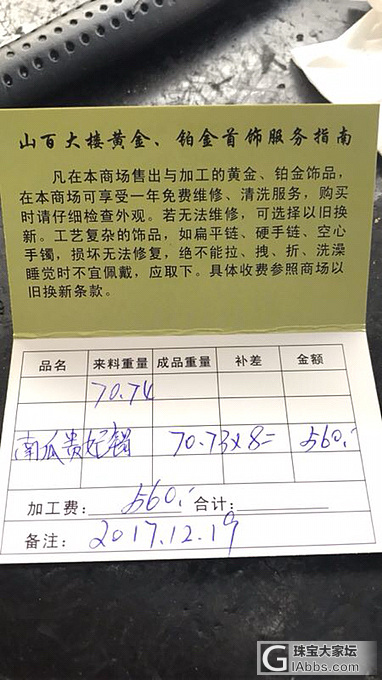 山百大楼黄金、铂金首饰服务指南
凡在本商场售出与加工的黄金、铂金饰品,
在本商场可享受一年免费维修、清洗服务，购买
时请仔细检查外观。若无法维修，可选择以旧换
新。工艺复杂的饰品，如扁平链、硬手链、空心
手镯，损坏无法修复，绝不能拉、拽、折、洗澡
睡觉时不宜佩戴，应取下。具体收费参照商场以
旧换新条款。
品名 来料重量 成品重量 补差 金额
70.74
南瓜贵妃镯 70.73×8= 560.
加工费: 560. 合计:
备注: 2017.12.19
G 珠宝大家坛
GIAbbs.com